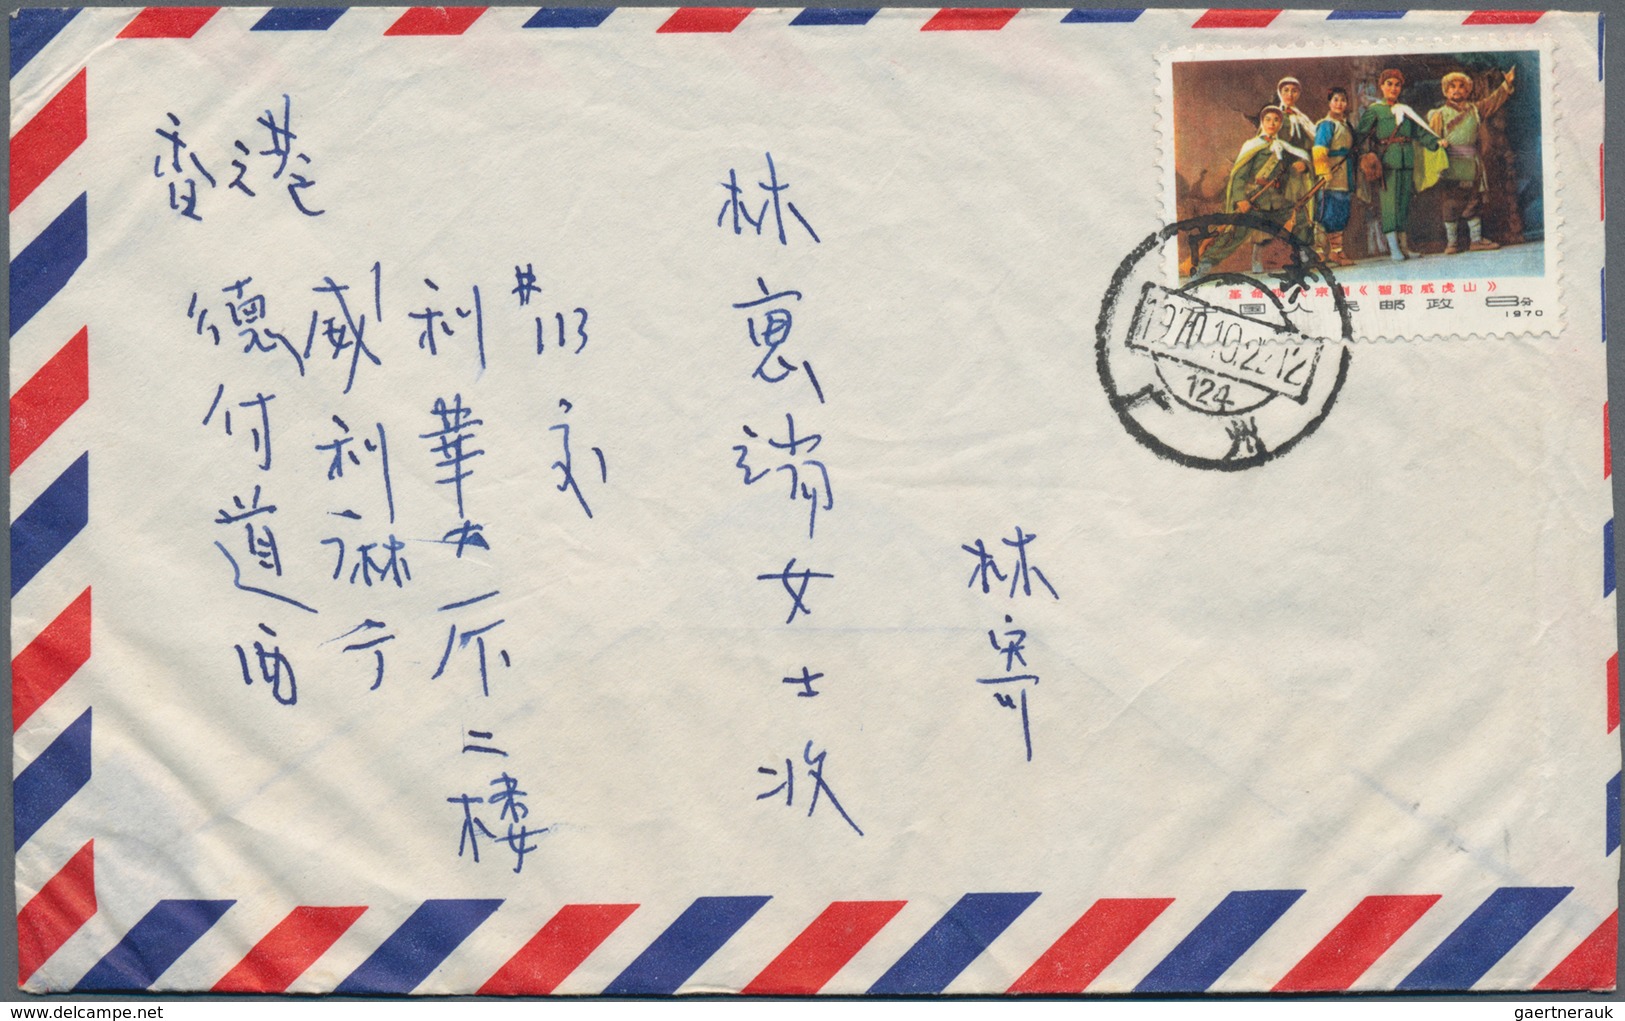 香港
德付道西
威利麻街
利華大廈二樓
#113室
林惠端女士收
林寄
革命现代京剧《智取威虎山》
中国人民邮政 8分
1970
广州
1970.10.22.12
124
广州
gaertnerauk